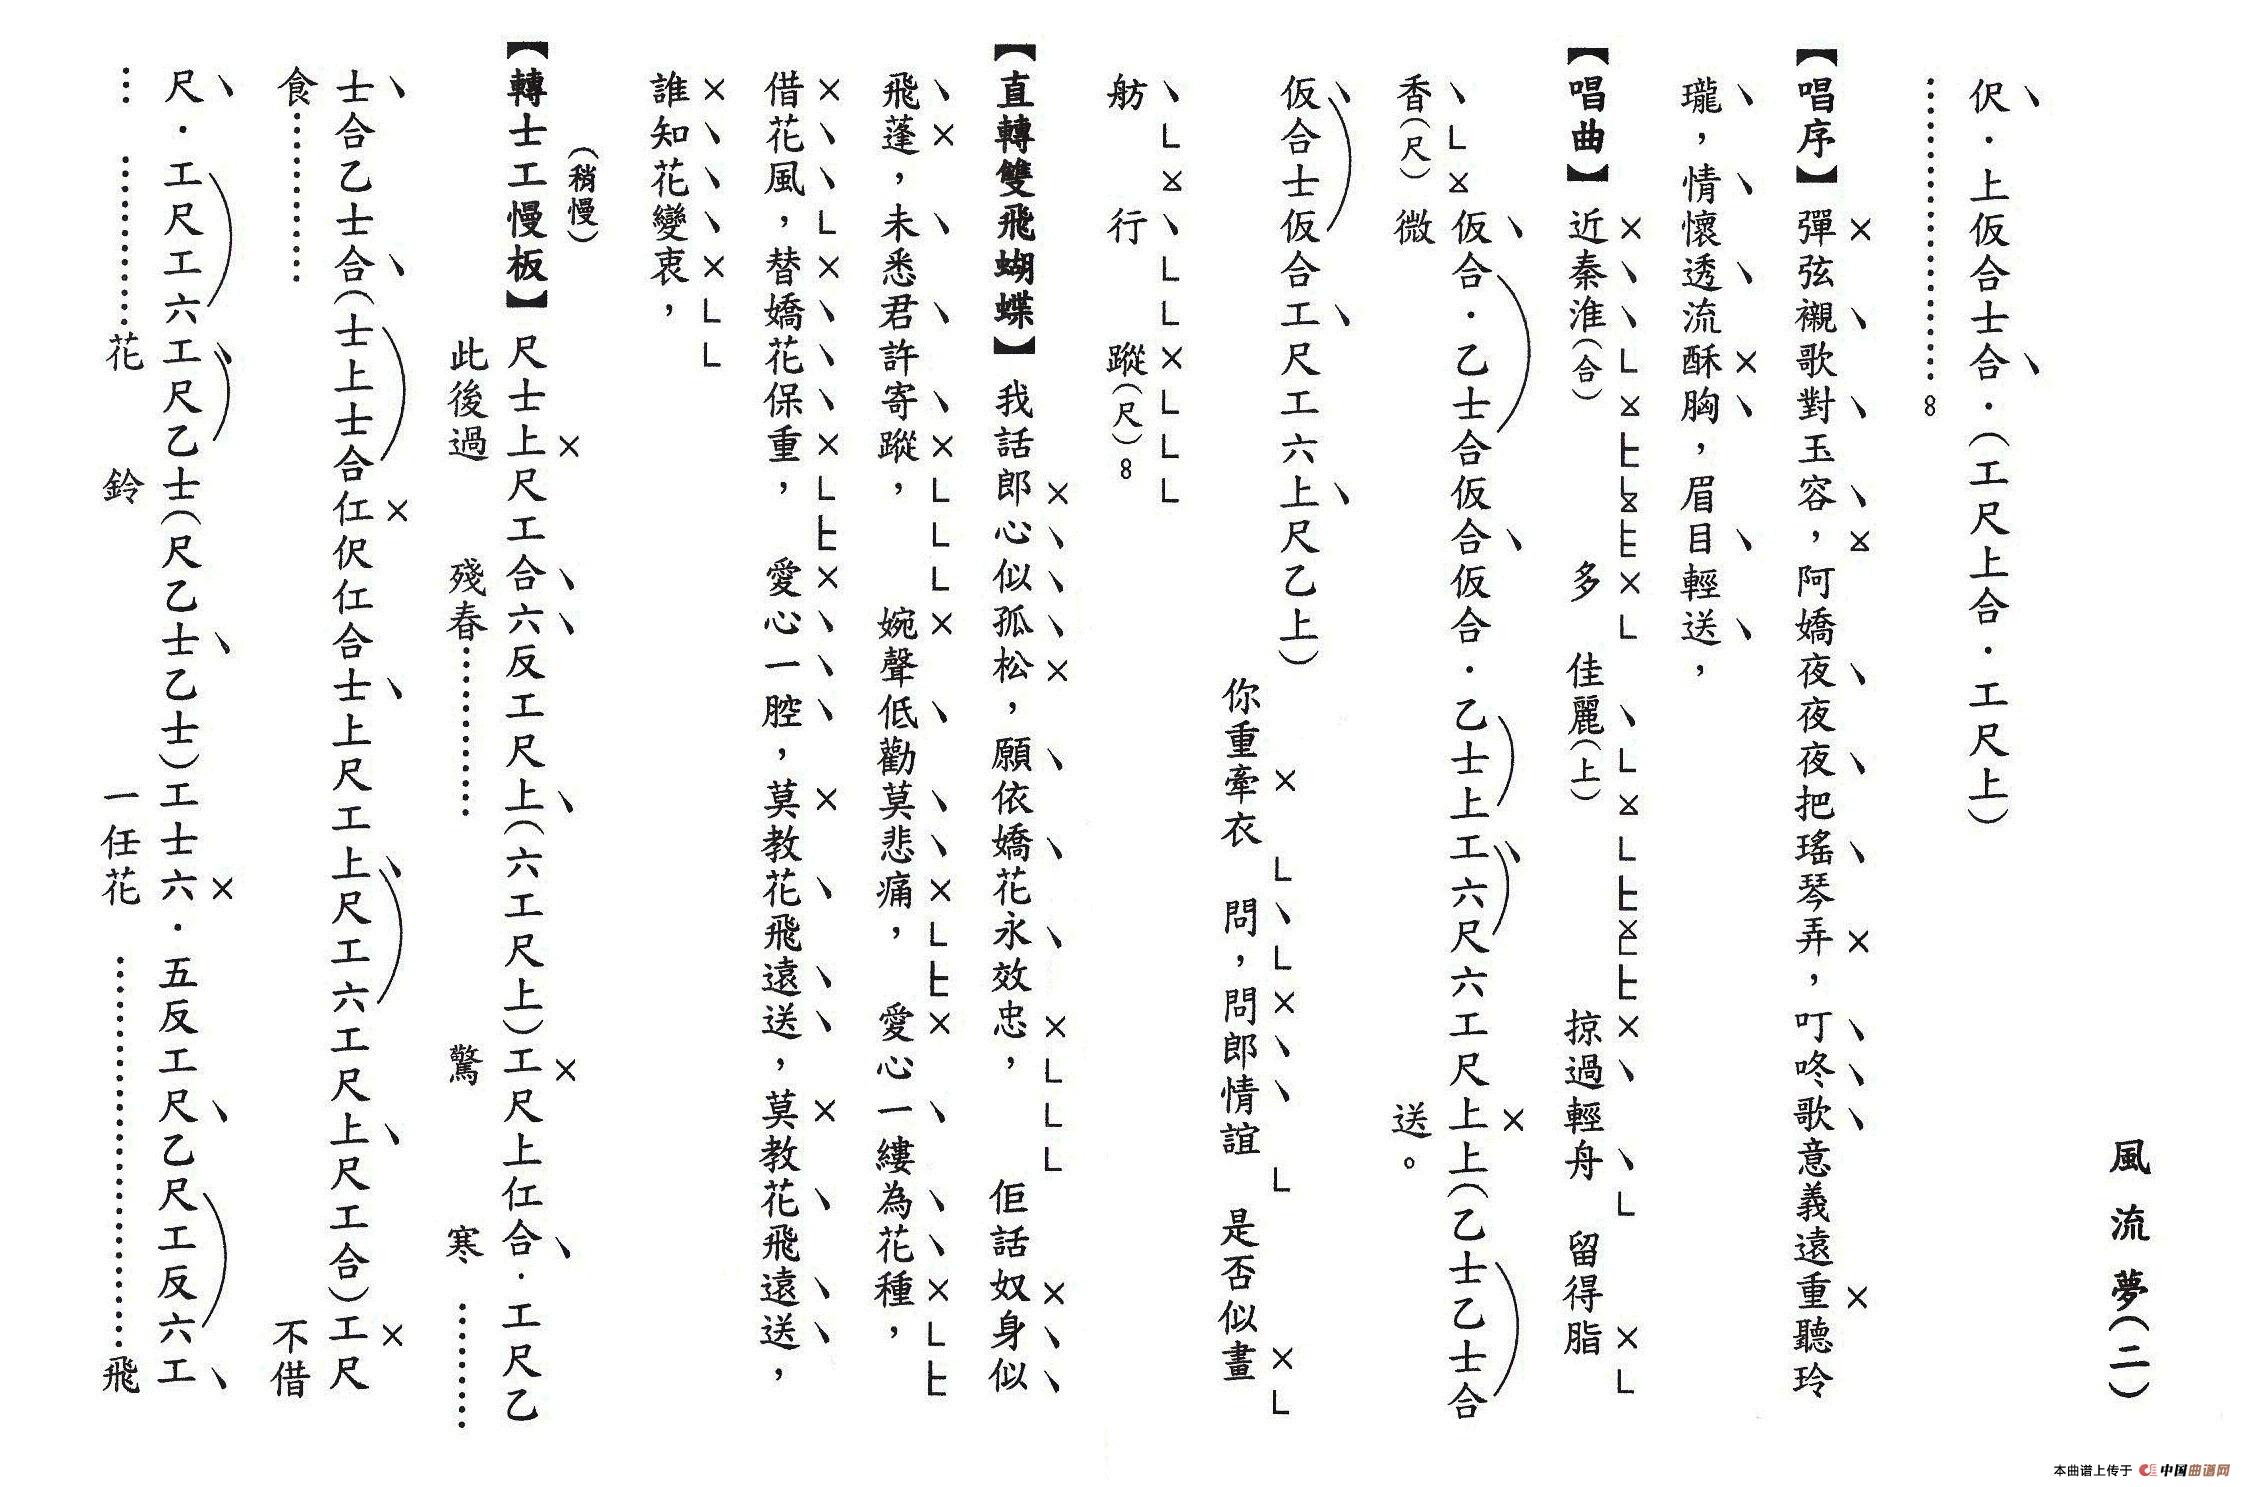 風流夢(二)
伬．上仮合士合．(工尺上合．工尺上)
………………8
【唱序】彈弦襯歌對玉容，阿嬌夜夜夜把瑤琴弄，叮咚歌意義遠重聽玲
瓏，情懷透流酥胸，眉目輕送，
【唱曲】近秦淮(合)多佳麗(上)掠過輕舟留得脂
香(尺)微送。
仮合．乙士合仮合仮合．乙士上工六尺六工尺上上(乙士乙士合
仮合士仮合工尺工六上尺乙上)
你重牽衣問，問郎情誼是否似畫
舫行蹤(尺)8
【直轉雙飛蝴蝶】我話郎心似孤松，願依嬌花永效忠，佢話奴身似
飛蓬，未悉君許寄蹤，婉聲低勸莫悲痛，愛心一縷為花種，
借花風，替嬌花保重，愛心一腔，莫教花飛遠送，莫教花飛遠送，
誰知花變衷，
(稍慢)
【轉士工慢板】尺士上尺工合六反工尺上(六工尺上)工尺上仜合．工尺乙
此後過殘春…………驚寒………
士合乙士合(士上士合仜伬仜合士上尺工上尺工六工尺上尺工合)工尺
食…………不借
尺．工尺工六工尺乙士(尺乙士乙士)工士六．五反工尺乙尺工反六工
…………花鈴一任花…………………飛
本曲谱上传于 中国曲谱网